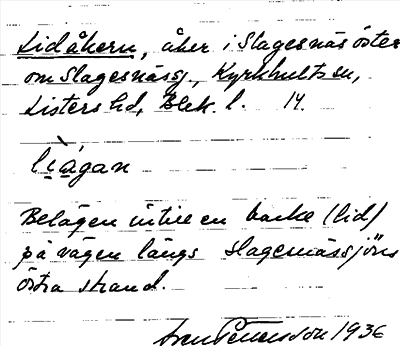 Lidåkern, åker i Slagesnäs öster
om Slagesnässj., Kyrkhults sn,
Listers hd, Blek. l. 14.
Belägen intill en backe (lid)
på vägen längs Slagesnässjöns
östra strand.
Sven Petersson 1936